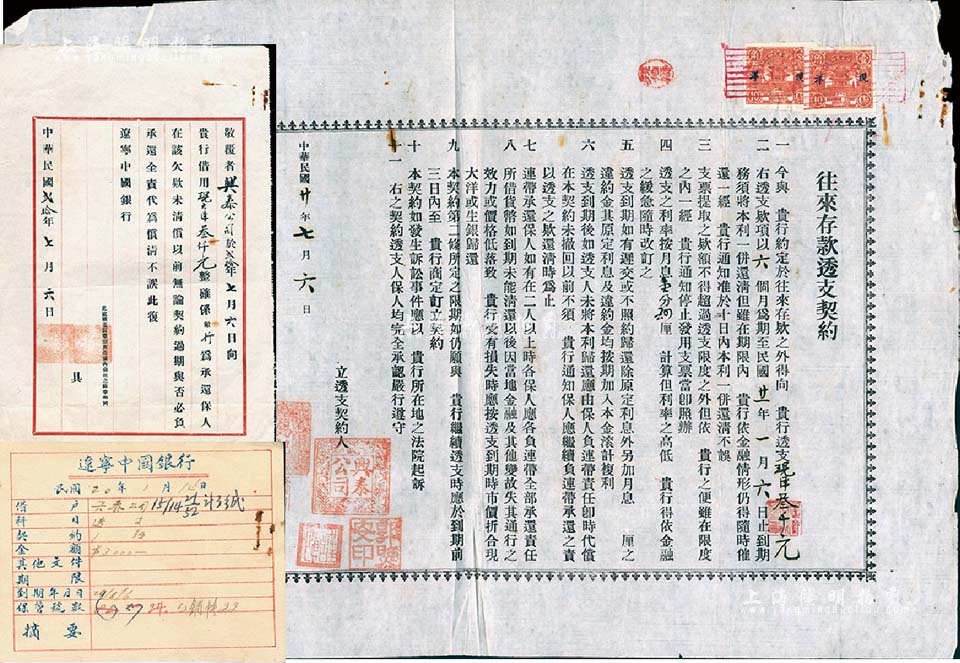 往來存款透支契約
一 今與 貴行約定於往來存款之外得向 貴行透支現洋叁仟元
二 右透支欵項以六個月為期至民國廿一年一月六日止到期
務須將本利一併還清但雖在期限內 貴行依金融情形仍得隨時催
還一經 貴行通知准於十日內本利一併還清不誤
三 支票提取之欵額不得超過透支限度之外但依 貴行之便雖在限度
之內一經 貴行通知停止發用支票當卽照辦
四 透支之利率按月息壹分 厘 計算但利率之高低 貴行得依金融
之緩急隨時改訂之
五 透支到期如有遲交或不照約歸還除原定利息外另加月息 厘之
違約金其原定利息及違約金均按期加入本金滾計複利
六 透支到期後如透支人未將本利歸還應由保人負連帶責任卽時代償
在本契約未撤回以前不須 貴行通知保人應繼續負連帶承還之責
以透支之欵還清時為止
七 連帶承還保人如有在二人以上時各保人應各負連帶全部承還責任
八 所借貨幣如到期未能清還以後因當地金融及其他變故失其通行之
效力或價格低落致 貴行受有損失時應按透支到期時市價折合現
大洋或生銀歸還
九 本契約第二條所定之限期如仍願與 貴行繼續透支時應於到期前
三日內至 貴行商定訂立契約
十 本契約如發生訴訟事件應以 貴行所在地之法院起訴
十一 右之契約透支人保人均完全承認嚴行遵守
立透支契約人
興泰公司
中華民國廿年七月六日
敬覆者興泰公司於貳拾年七月六日向
貴行借用現大洋叁仟元整確係敝行為承還保人
在該欠欵未清償以前無論契約過期與否必負
承還全責代為償清不誤此復
遼寧中國銀行
具
中華民國貳拾年七月六日
遼寧中国銀行
民國 20 年 1 月 日
借戶 興泰公司
科目 透支
契約
金額 $3000—
其他文件
期限
到期年月日
保管號數
摘要
上海陽明拍賣
www.yingmingauction.com